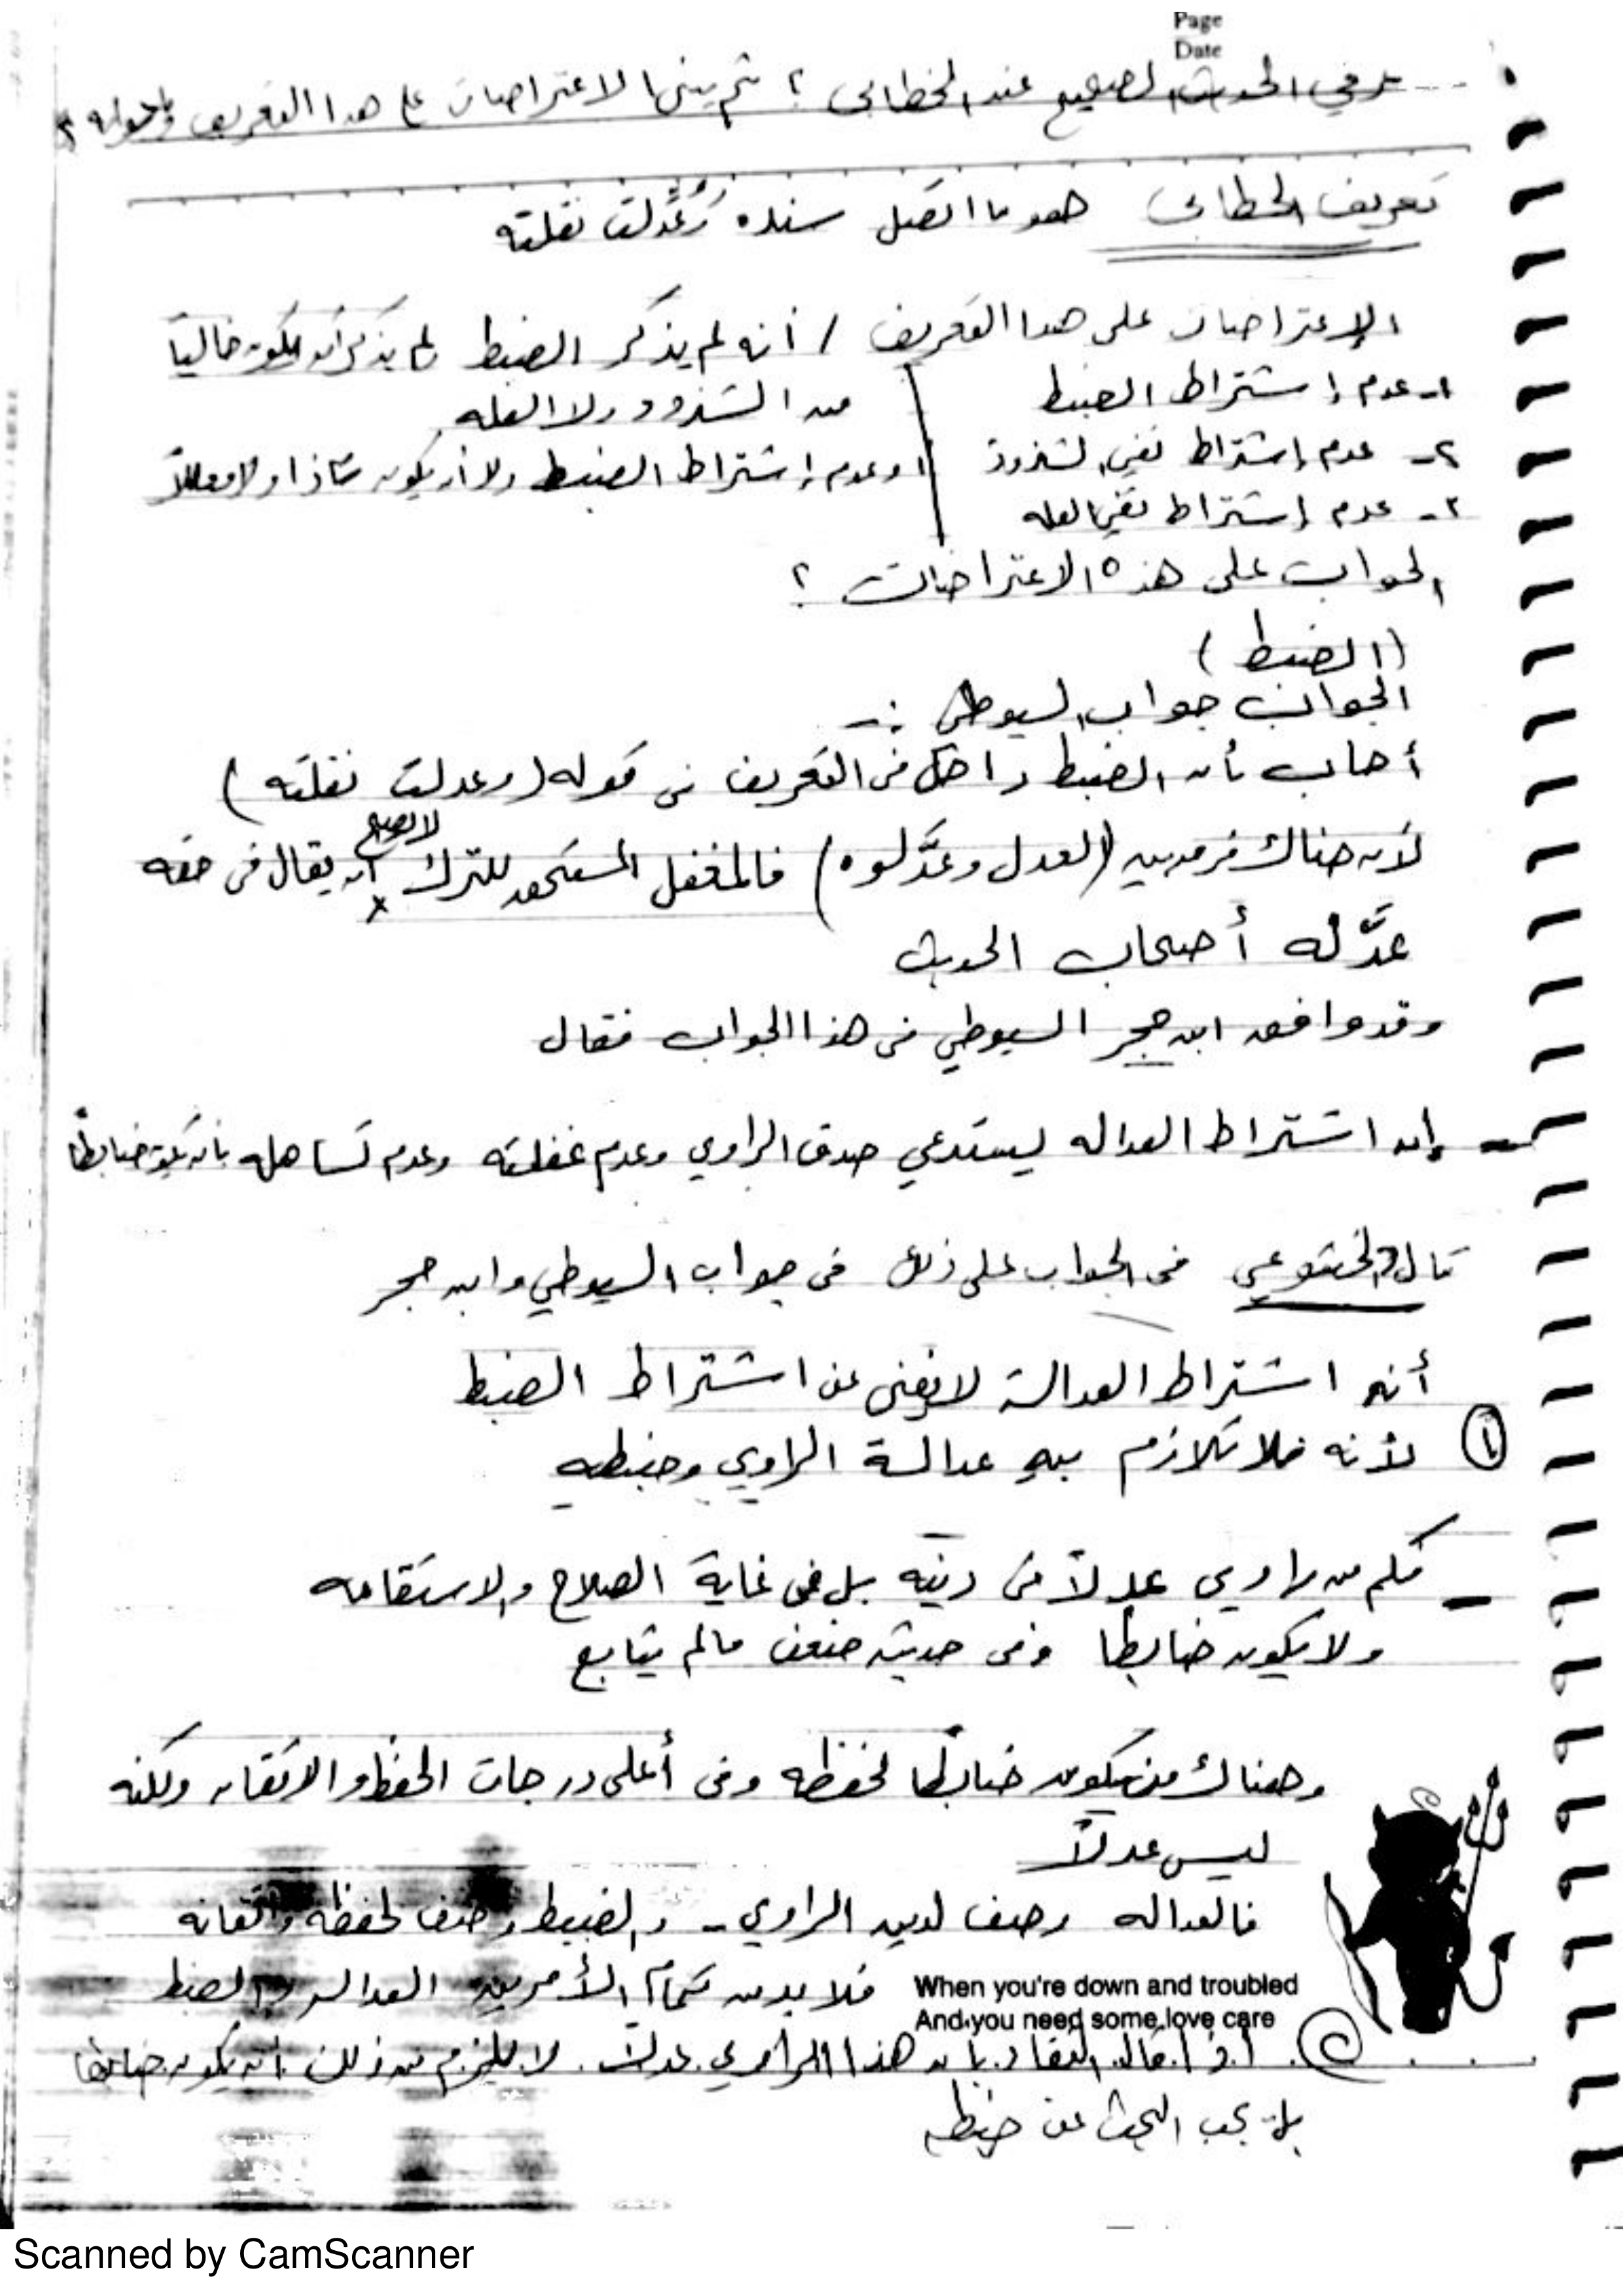 Page
Date
عرفي الحديث الصحيح عند الخطابي ؟ ثم بيني الاعتراضات على هذا التعريف وجوابه ؟
تعريف الخطابي هو ما اتصل سنده وعُدِّلت نقلته
الإعتراضات على هذا التعريف / أنه لم يذكر الضبط ولم يذكر أنه يكون خالياً
من الشذوذ ولا العله
١- عدم إشتراط الضبط
٢- عدم إشتراط نفي الشذوذ
أو عدم إشتراط الضبط ولا أن يكون شاذا ولا معللاً
٣- عدم إشتراط نفي العله
الجواب على هذه الاعتراضات ؟
(الضبط)
الجواب جواب السيوطي :-
أجاب بأن الضبط داخل في التعريف في قوله (وعدلت نقلته)
لأن هناك فرق بين (العدل وعدَّلوه) فالمغفل المستحق للترك لا يصح أن يقال في حقه
عدَّله أصحاب الحديث
وقد وافق ابن حجر السيوطي في هذا الجواب فقال
- إن اشتراط العداله يستدعي صدق الراوي وعدم غفلته وعدم تساهله بأن يكون ضابطاً
قال الختوعي في الجواب على ذلك في جواب السيوطي وابن حجر
أنه اشتراط العدالة لا يغني عن اشتراط الضبط
١ لأنه فلا تلازم بين عدالة الراوي وضبطه
- فكم من راوي عدلاً في دينه بل في غاية الصلاح والاستقامه
ولا يكون ضابطا وفي حديثه ضعف مالم يتابع
وهناك من يكون ضابطا لحفظه وفي أعلى درجات الحفظ والاتقان ولكنه
ليس عدلاً
فالعداله وصف لدين الراوي - والضبط وصف لحفظه واتقانه
فلا بد من تمام الأمرين العداله والضبط
When you're down and troubled
And you need some love care
اذا قال النقاد بأن هذا الراوي عدل لا يلزم من ذلك أن يكون ضابطا
بل يجب البحث عن ضبطه
Scanned by CamScanner